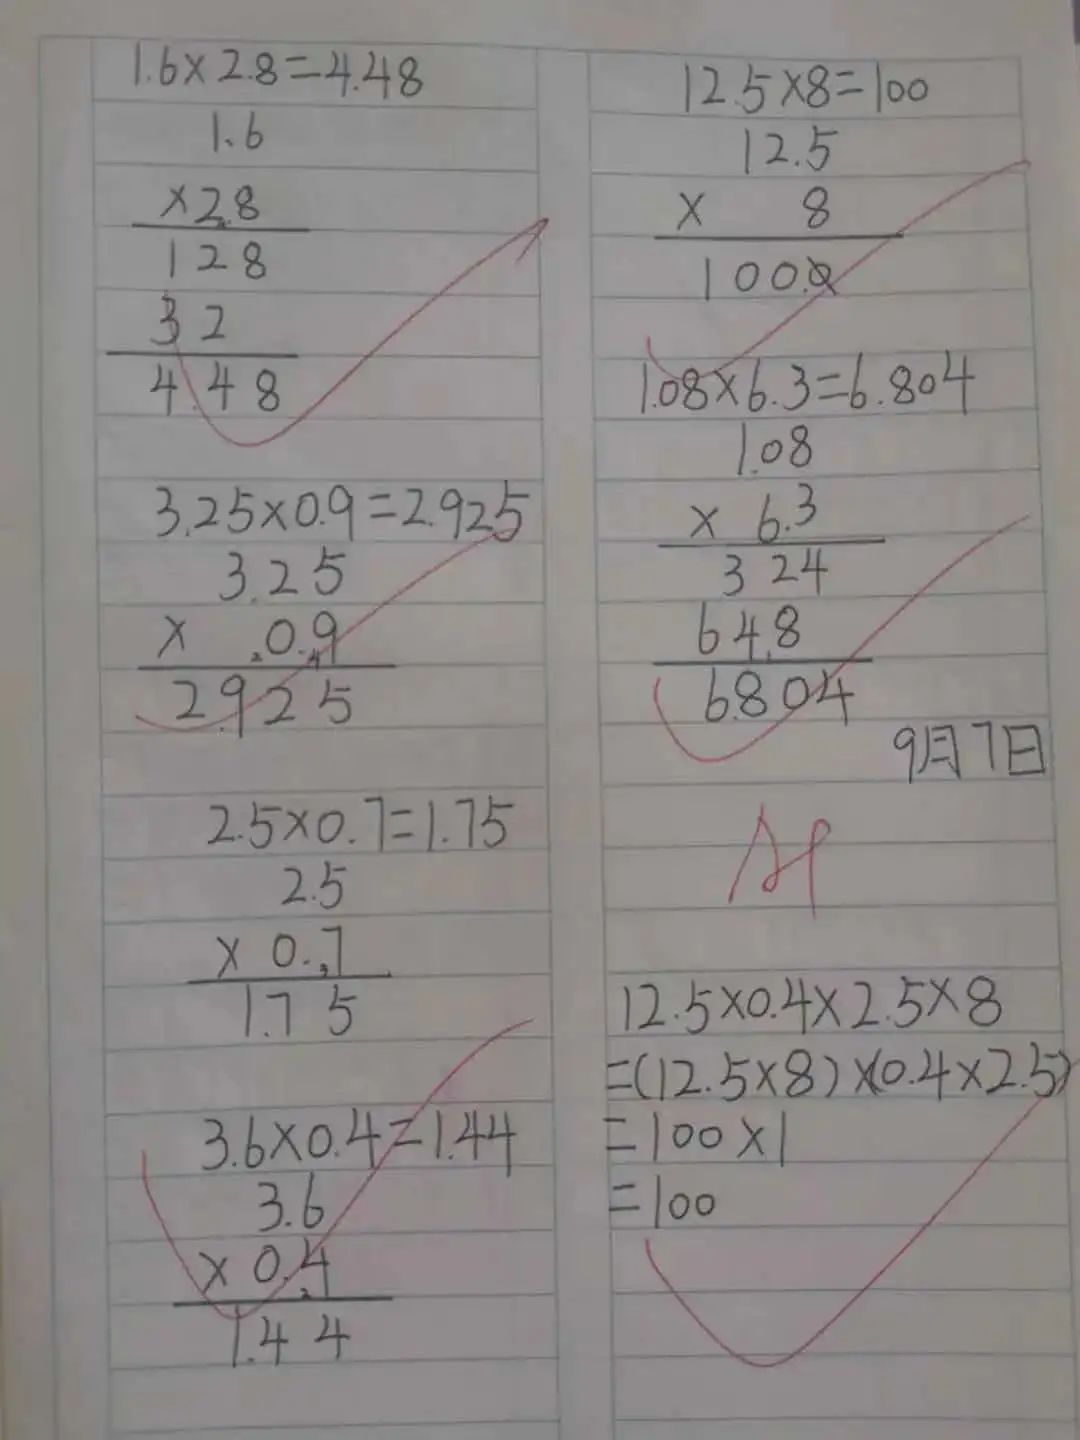 1.6×2.8=4.48
1.6
×2.8
128
32
4.48
3.25×0.9=2.925
3.25
× 0.9
2.925
2.5×0.7=1.75
2.5
× 0.7
1.75
3.6×0.4=1.44
3.6
× 0.4
1.44
12.5×8=100
12.5
× 8
100.0
1.08×6.3=6.804
1.08
× 6.3
324
648
6.804
9月7日
12.5×0.4×2.5×8
=(12.5×8)×(0.4×2.5)
=100×1
=100